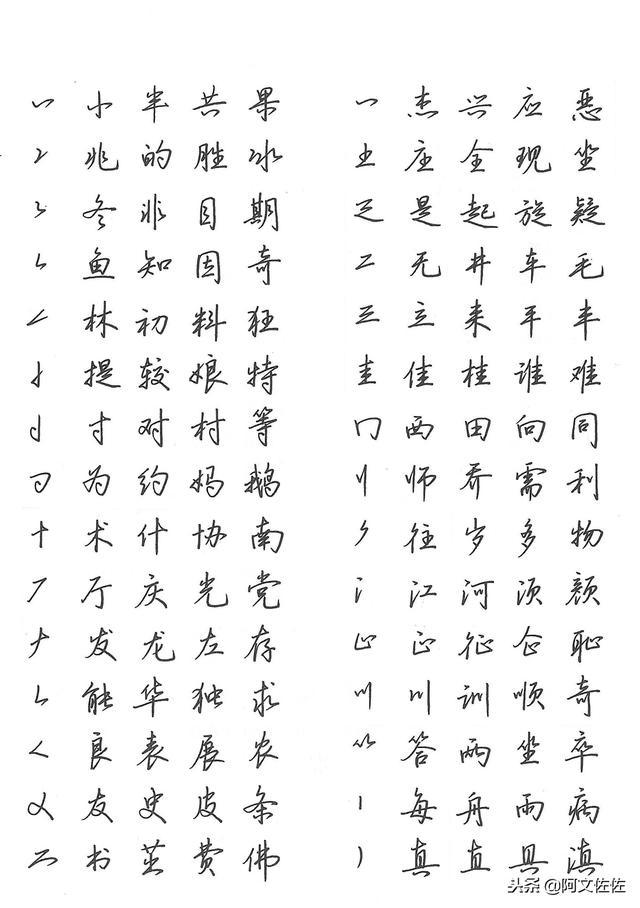 小 半 共 果
兆 的 胜 冰
冬 非 目 期
鱼 知 因 奇
林 初 料 狂
提 较 娘 特
寸 对 村 等
为 约 妈 鹅
十 术 什 协 南
厅 庆 光 党
发 龙 左 存
能 华 独 求
良 表 展 农
友 史 皮 条
书 茎 费 佛
杰 兴 应 恶
土 座 全 现 坐
是 起 旋 疑
二 无 井 车 毛
三 立 来 平 丰
圭 佳 桂 谁 难
冂 西 田 向 同
刂 师 乔 需 利
往 岁 多 物
氵 江 河 须 颜
止 正 征 企 耻
川 川 训 顺 奇
答 两 坐 卒
丨 每 舟 雨 病
真 直 具 滇
头条 @阿文佐佐